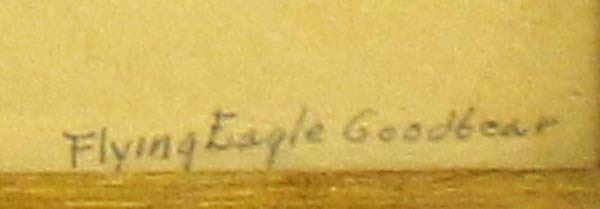 Flying Eagle Goodbear